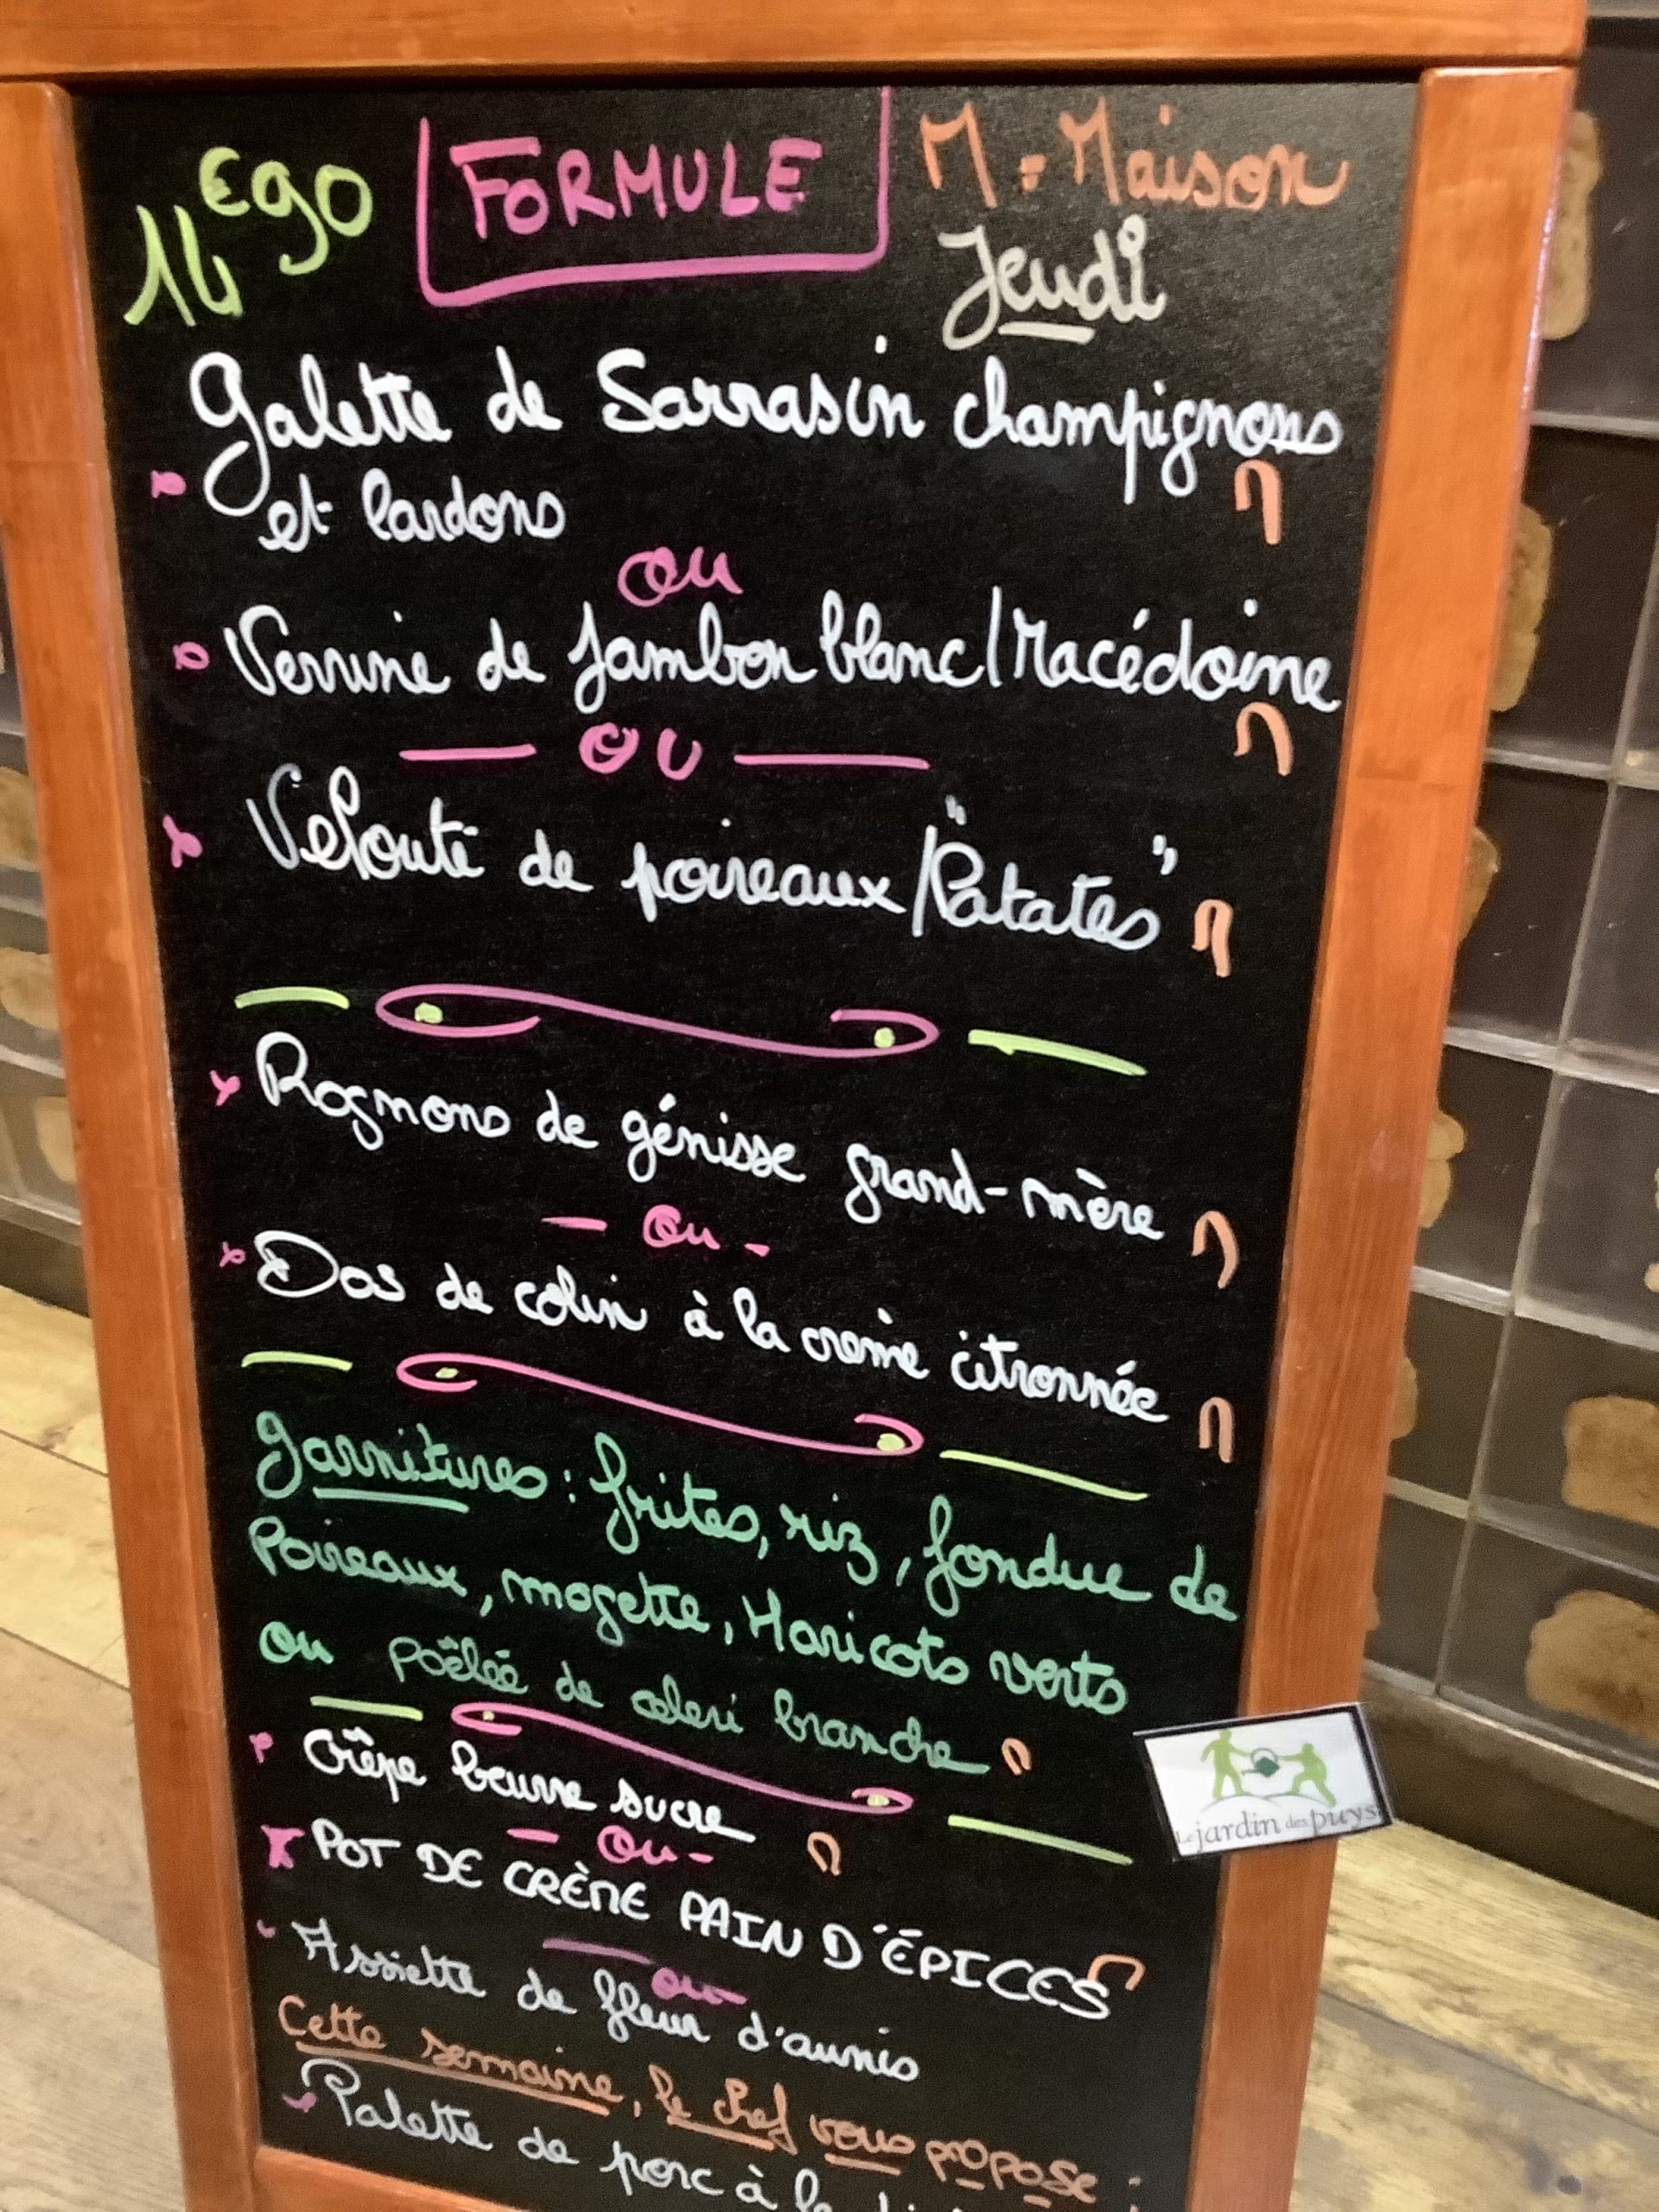 14€90 FORMULE M = Maison
Jeudi
Galette de Sarrasin champignons
et lardons M
ou
Verrine de Jambon blanc/Macédoine
M
OU
Velouté de poireaux/"Patates" M
Rognons de génisse grand-mère M
ou
Dos de colin à la crème citronnée M
Garnitures : frites, riz, fondue de
Poireaux, mogette, Haricots verts
ou poêlée de celeri branche M
Crêpe beurre sucre M
ou
POT DE CRÈME PAIN D'ÉPICES M
ou
Assiette de fleur d'aunis
Cette semaine, le chef vous propose :
Palette de porc à la
Le jardin des puys